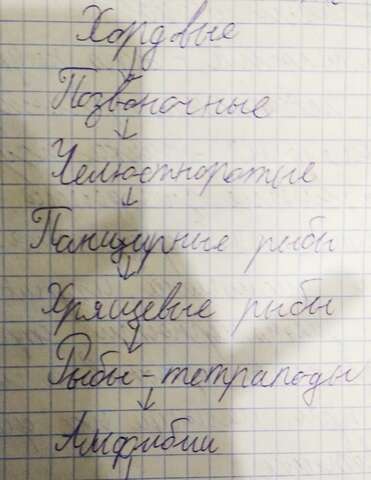 Хордовые
Позвоночные
Челюстноротые
Панцирные рыбы
Хрящевые рыбы
Рыбы-тетраподы
Амфибии